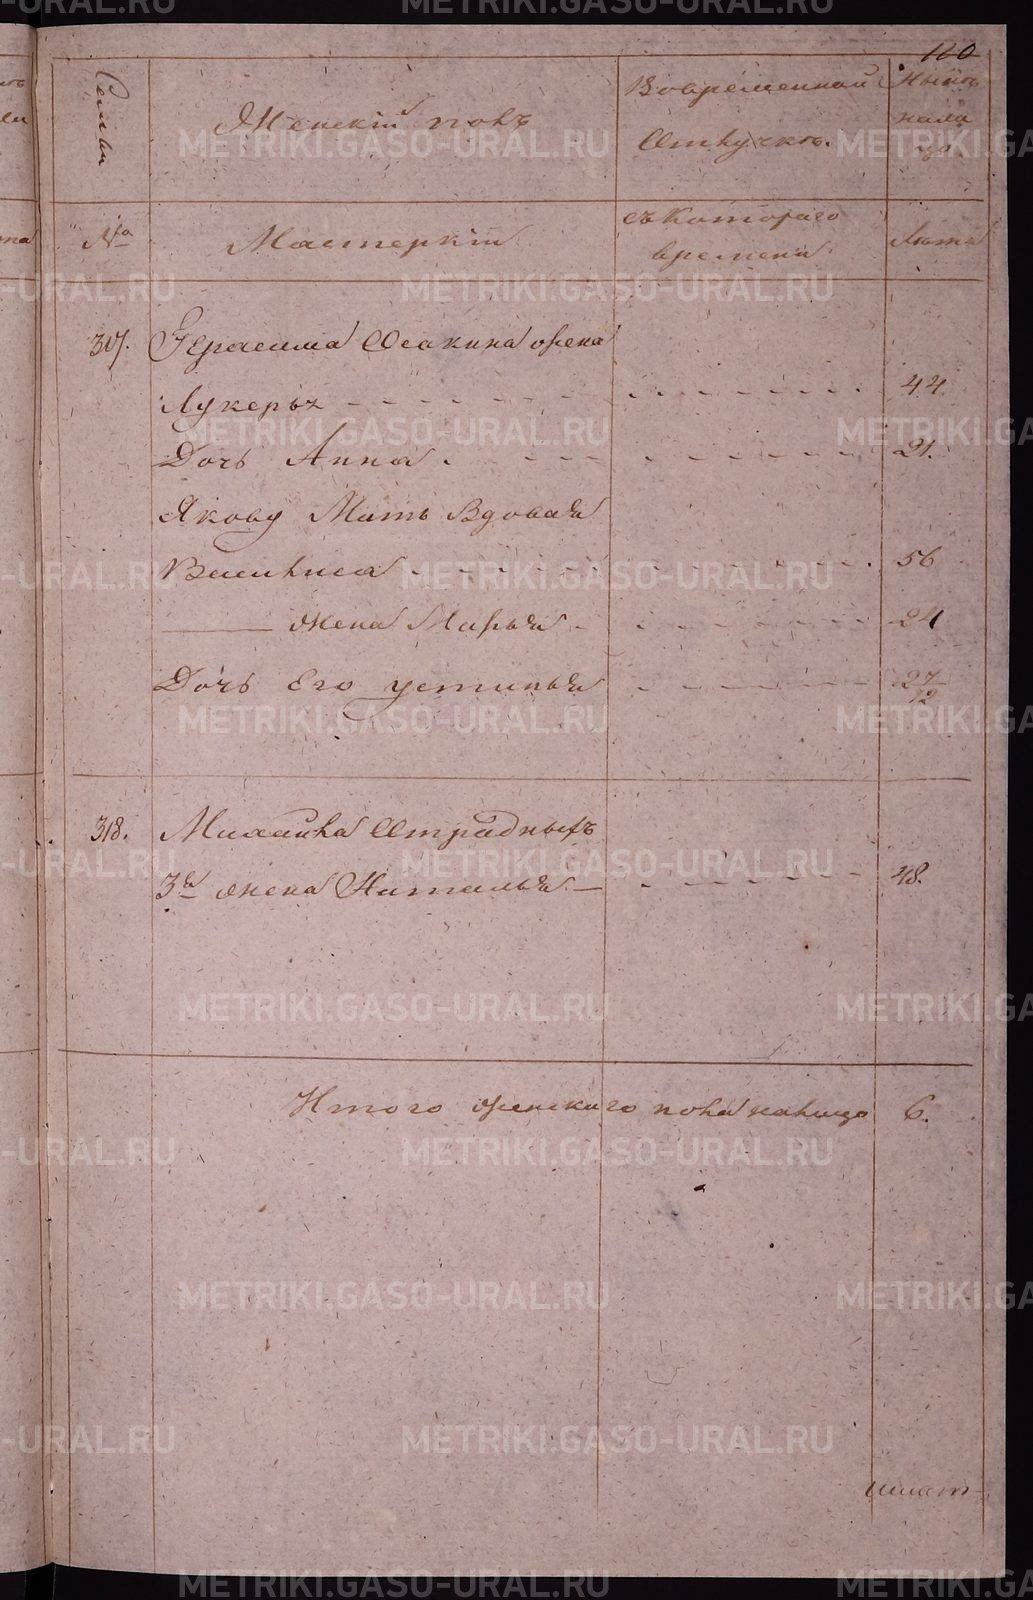 120
Семьи
Женскій полъ
Во временной
Отлучкѣ.
Нынѣ
на ли
цо.
№
Мастеркіи
съ Котораго
времени
Лѣта
317. Герасима Осакина жена
Лукерья 44
Дочь Анна 21.
Якову Мать Вдовая
Василиса 56
жена Марья 24
Дочь Его устинья 27/12
318. Михаила Отрадныхъ
3я жена Наталья 48.
Итого женскаго пола налицо 6.
METRIKI.GASO-URAL.RU